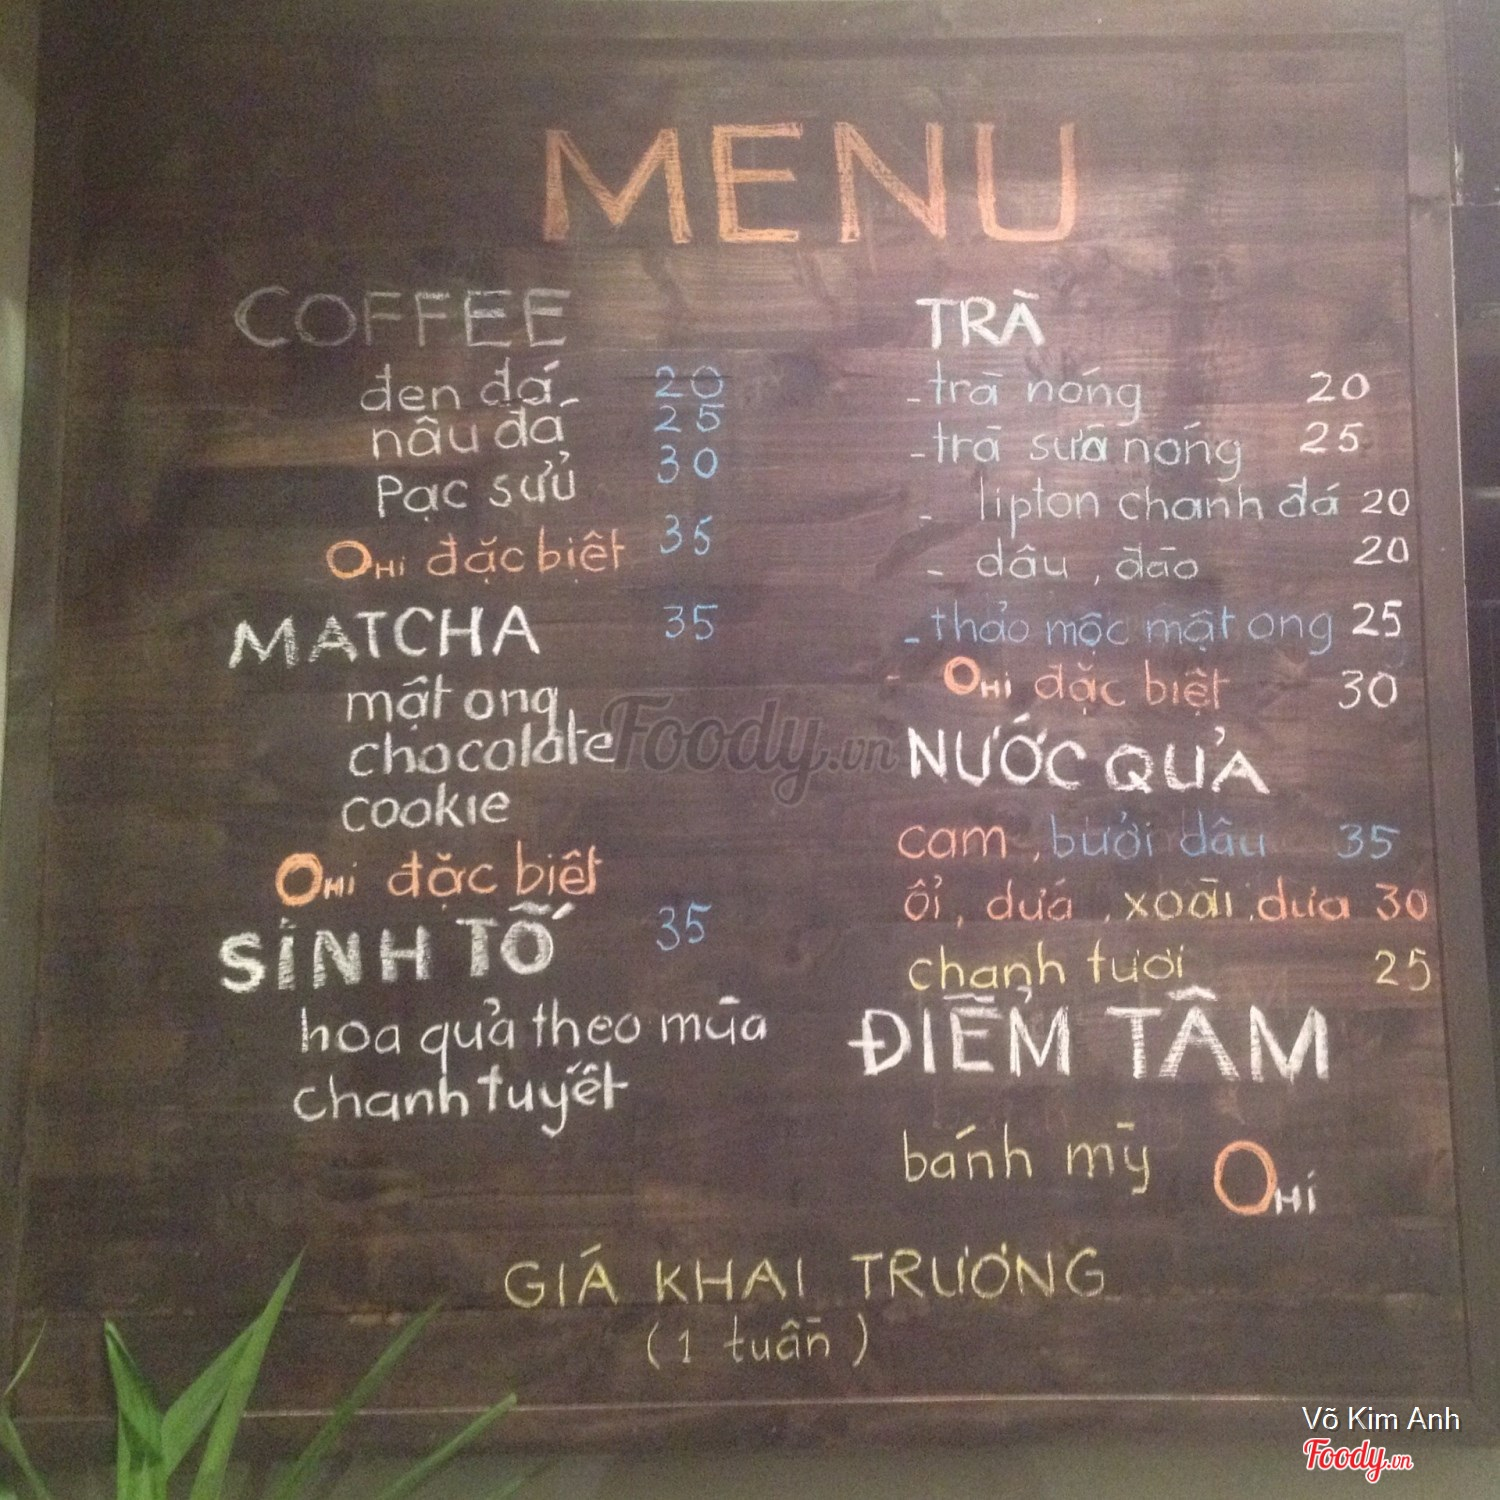 MENU
COFFEE
đen đá 20
nâu đá 25
Pạc sửu 30
OHI đặc biệt 35
MATCHA 35
mật ong
chocolate
cookie
OHI đặc biệt
SINH TỐ 35
hoa quả theo mùa
chanh tuyết
TRÀ
- trà nóng 20
- trà sữa nóng 25
- lipton chanh đá 20
- dâu, đào 20
- thảo mộc mật ong 25
- OHI đặc biệt 30
NƯỚC QUẢ
cam, bưởi dâu 35
ổi, dứa, xoài, dưa 30
chanh tươi 25
ĐIỂM TÂM
bánh mỳ OHI
GIÁ KHAI TRƯƠNG
(1 tuần)
Foody.vn
Võ Kim Anh
Foody.vn